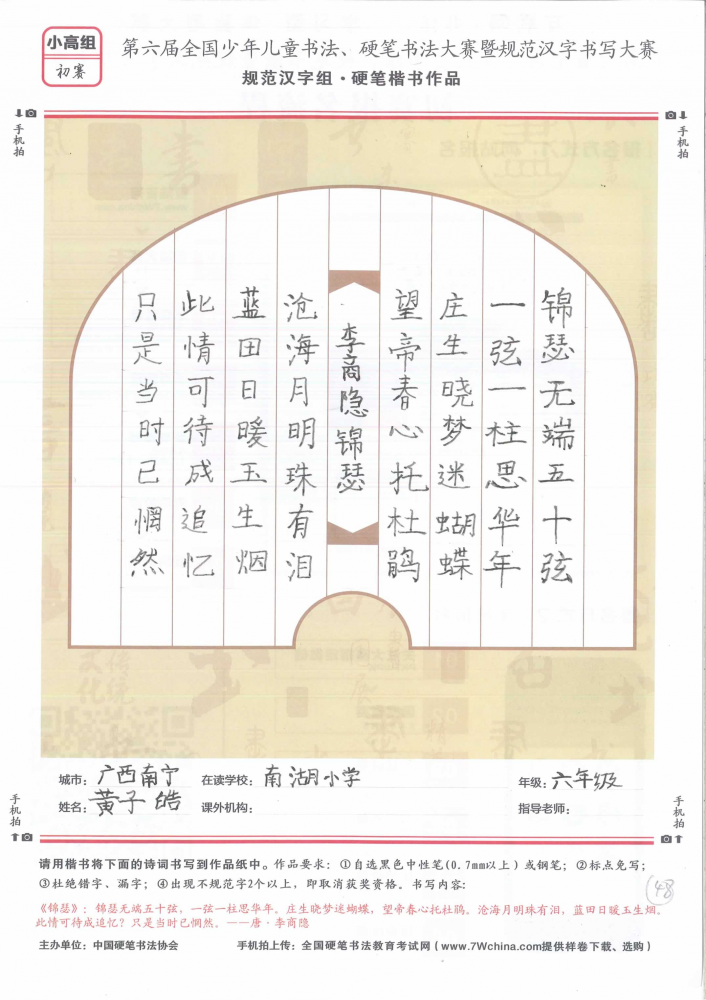 小高组
初赛
第六届全国少年儿童书法、硬笔书法大赛暨规范汉字书写大赛
规范汉字组·硬笔楷书作品
手机拍
手机拍
锦瑟无端五十弦
一弦一柱思华年
庄生晓梦迷蝴蝶
望帝春心托杜鹃
李商隐锦瑟
沧海月明珠有泪
蓝田日暖玉生烟
此情可待成追忆
只是当时已惘然
城市：广西南宁 在读学校：南湖小学 年级：六年级
姓名：黄子皓 课外机构： 指导老师：
手机拍
手机拍
请用楷书将下面的诗词书写到作品纸中。作品要求：①自选黑色中性笔(0.7mm以上)或钢笔；②标点免写；
③杜绝错字、漏字；④出现不规范字2个以上，即取消获奖资格。书写内容：
48
《锦瑟》：锦瑟无端五十弦，一弦一柱思华年。庄生晓梦迷蝴蝶，望帝春心托杜鹃。沧海月明珠有泪，蓝田日暖玉生烟。
此情可待成追忆？只是当时已惘然。——唐·李商隐
主办单位：中国硬笔书法协会 手机拍上传：全国硬笔书法教育考试网（www.7Wchina.com提供样卷下载、选购）